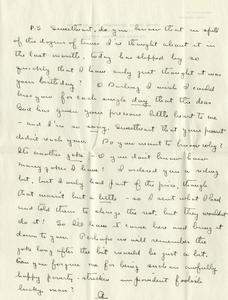 P.S. Sweetheart, do you know that in spite
of the dozens of times I've thought about it in
the last month, today has slipped by so
quickly that I have only just thought it was
your birthday? O Darling I wish I could
kiss you for each single day that the dear
God has given your precious little heart to me
- and I'm so sorry, Sweetheart that your present
didn't reach you. Do you want to know why?
It's another joke - O you don't know how
many jokes I have! I ordered you a riding
hat, but I only had part of the price, though
that wasn't but a little - so I sent what I had
and told them to charge the rest, but they wouldn't
do it! So I'll have it come here and bring it
down to you. Perhaps we will remember the
joke long after the hat would be just a hat.
Can you forgive me for being such an awfully
happy poverty-stricken improvident foolish
lucky man?